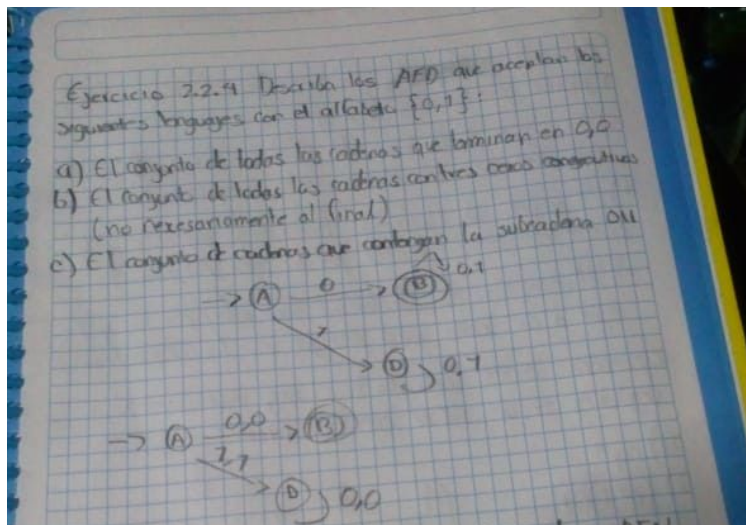 Ejercicio 2.2.4 Describa los AFD que aceptan los
siguientes lenguajes con el alfabeto {0,1}:
a) El conjunto de todas las cadenas que terminan en 0,0
b) El conjunt de todas las cadenas con tres ceros consecutivos
(no nexesariamente al final)
c) El conjunto de cadenas que contengan la subcadena 011
A 0 B 0,1
1
D 0,1
A 0,0 B
1,1
D 0,0